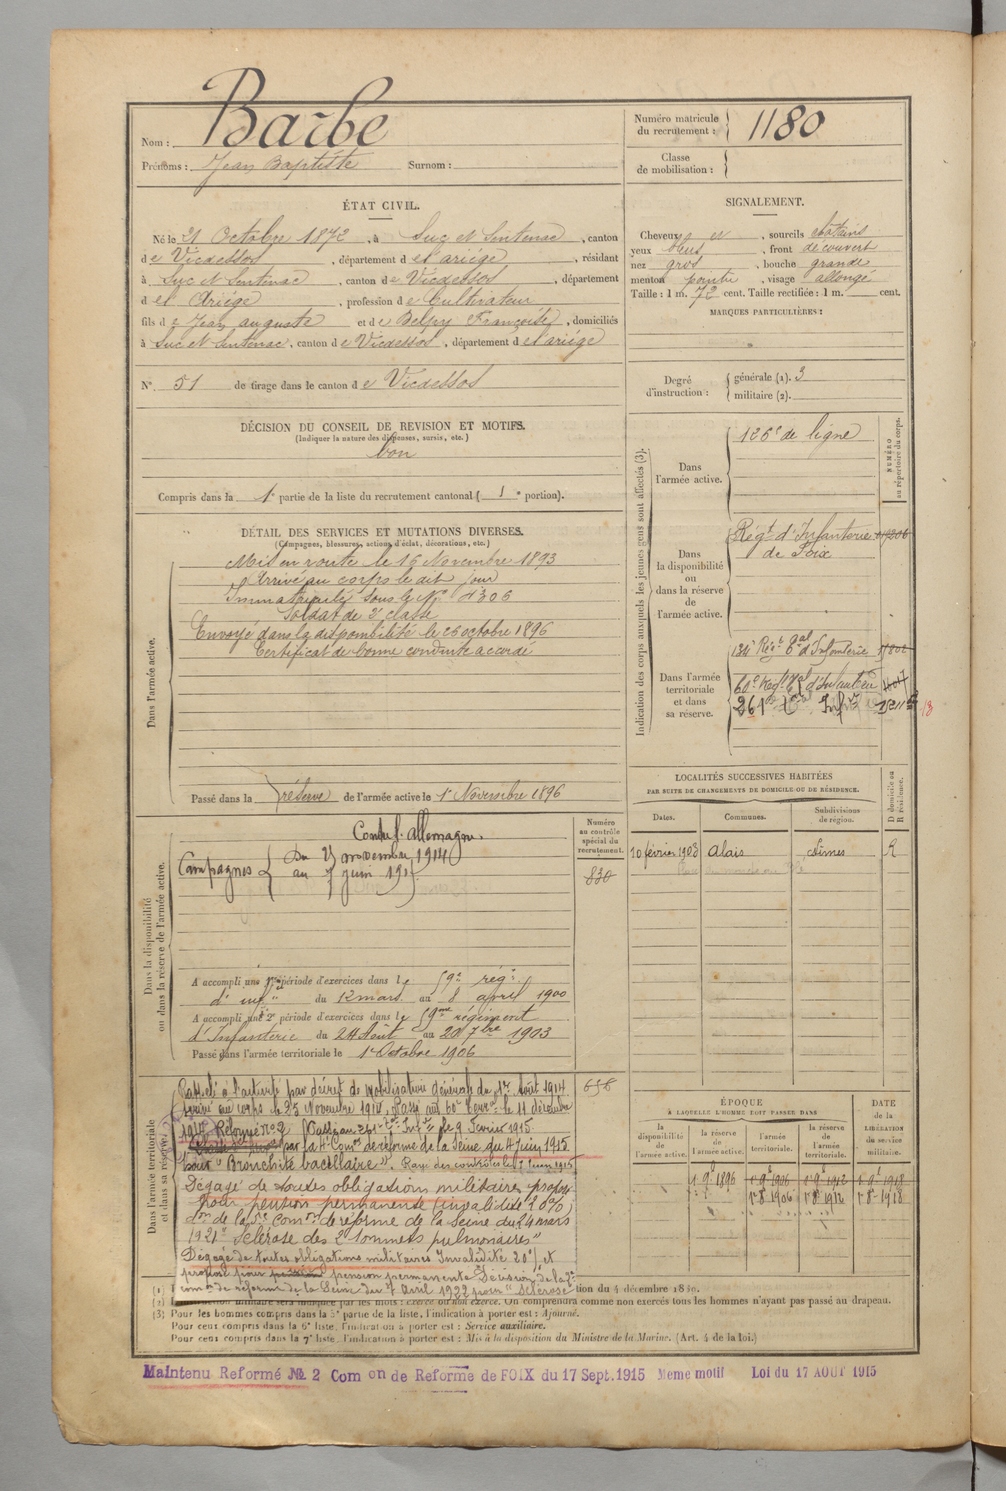 Nom : Barbe
Prénoms : Jean Baptiste Surnom :
Numéro matricule du recrutement : 1180
Classe de mobilisation :
ÉTAT CIVIL.
Né le 21 Octobre 1872, à Suc et Sentenac, canton
de Vicdessos, département d el ariége, résidant
à Suc et Sentenac, canton de Vicdessos, département
d el Ariége, profession de Cultivateur
fils de Jean auguste et de Belpy Françoise, domiciliés
à Suc et Sentenac, canton de Vicdessos, département d el ariége
N° 51 de tirage dans le canton de Vicdessos
SIGNALEMENT.
Cheveux et, sourcils chatains
yeux bleus, front découvert
nez gros, bouche grande
menton pointu, visage allongé
Taille : 1 m. 72 cent. Taille rectifiée : 1 m. cent.
MARQUES PARTICULIÈRES :
Degré d'instruction : générale (1). 3
militaire (2).
DÉCISION DU CONSEIL DE REVISION ET MOTIFS.
(Indiquer la nature des dispenses, sursis, etc.)
bon
Compris dans la 1e partie de la liste du recrutement cantonal (1e portion).
DÉTAIL DES SERVICES ET MUTATIONS DIVERSES.
(Campagnes, blessures, actions d'éclat, décorations, etc.)
Dans l'armée active.
Mis en route le 16 Novembre 1893
Arrivé au corps le dit jour
Immatriculé sous le N° 4306
Soldat de 2e classe
Envoyé dans la disponibilité le 26 octobre 1896
Certificat de bonne conduite accordé
Passé dans la réserve de l'armée active le 1er Novembre 1896
Indication des corps auxquels les jeunes gens sont affectés (3).
NUMÉRO au répertoire du corps.
Dans l'armée active.
126e de ligne
Dans la disponibilité ou dans la réserve de l'armée active.
Régt d'Infanterie
de Foix
Dans l'armée territoriale et dans sa réserve.
134e Régt tal d'Infanterie
60e Regt tal d'Infanterie
261e
LOCALITÉS SUCCESSIVES HABITÉES
PAR SUITE DE CHANGEMENTS DE DOMICILE OU DE RÉSIDENCE.
D domicile ou R résidence.
Dates. Communes. Subdivisions de région.
10 février 1903 Alais Nîmes R
Dans la disponibilité ou dans la réserve de l'armée active.
Numéro au contrôle spécial du recrutement.
830
Contre l'Allemagne.
Campagnes du 25 novembre 1914
au 7 juin 1915
A accompli une 1re période d'exercices dans le 59e rég.
d'inf du 12 mars au 8 avril 1900
A accompli une 2e période d'exercices dans le 59me régiment
d'Infanterie du 24 Août au 20 7bre 1903
Passé dans l'armée territoriale le 1er Octobre 1906
Dans l'armée territoriale et dans sa réserve.
656
Rappelé à l'activité par décret de Mobilisation Générale du 1er Août 1914
Arrivé au corps le 25 Novembre 1914. Passé au 60e Terr al le 11 décembre
1914. Passé au 261e Ter Infie le 9 Fevrier 1915.
Réformé n° 2
par la 4e Comon de réforme de la Seine du 4 Juin 1915
pour "Bronchite bacillaire". Rayé des contrôles le 7 Juin 1915
Dégagé de toutes obligation militaires proposé
pour pension permanente (invalidité 20%)
don de la 1re Comon de réforme de la Seine du 24 mars
1921 "Sclérose des 2 sommets pulmonaires"
Dégagé de toutes obligations militaires Invalidité 20% et
proposé pour pension permanente Décision de la 2e
comon de réforme de la Seine du 7 Avril 1922 pour "sclérose
ÉPOQUE
À LAQUELLE L'HOMME DOIT PASSER DANS
la disponibilité de l'armée active. la réserve de l'armée active. l'armée territoriale. la réserve de l'armée territoriale.
DATE de la LIBÉRATION du service militaire.
1 9e 1896 1er 9e 1906 1er 9e 1912 1er 9e 1918
1er 8e 1906 1er 8e 1912 1er 8e 1918
(1) tion du 4 décembre 1889.
(2) militaire sera indiquée par les mots : exercé ou non exercé. On comprendra comme non exercés tous les hommes n'ayant pas passé au drapeau.
(3) Pour les hommes compris dans la 5e partie de la liste, l'indication à porter est : Ajourné.
Pour ceux compris dans la 6e liste, l'indication à porter est : Service auxiliaire.
Pour ceux compris dans la 7e liste, l'indication à porter est : Mis à la disposition du Ministre de la Marine. (Art. 4 de la loi.)
Maintenu Reformé № 2 Com on de Reforme de FOIX du 17 Sept. 1915 Meme motif Loi du 17 AOUT 1915